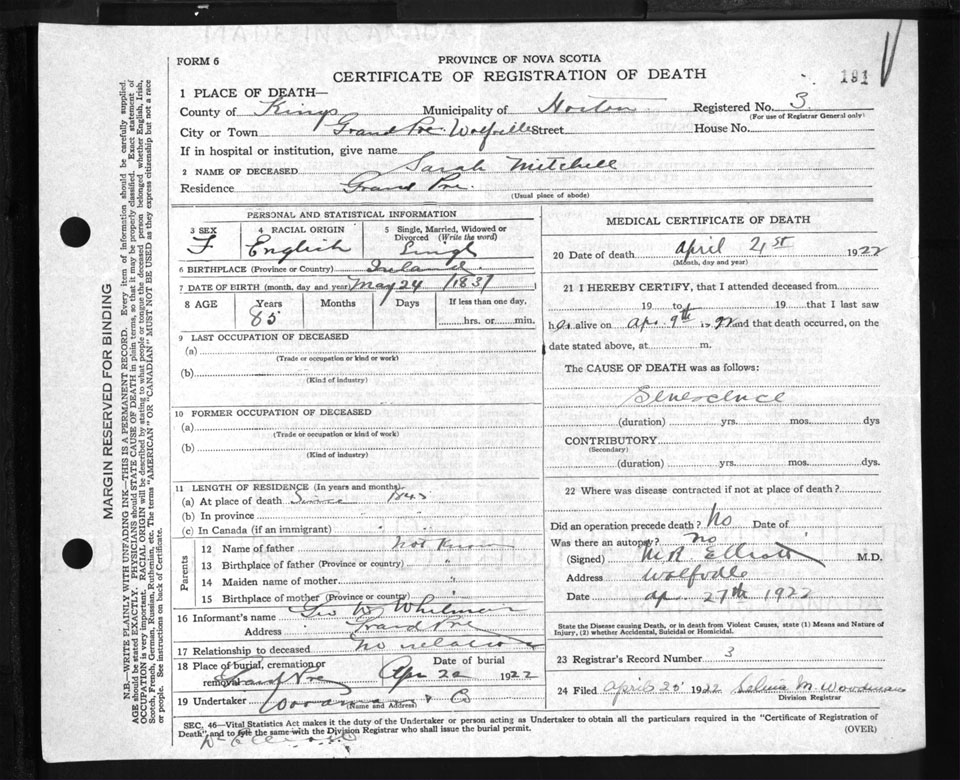 FORM 6
PROVINCE OF NOVA SCOTIA
CERTIFICATE OF REGISTRATION OF DEATH
191
1 PLACE OF DEATH—
County of Kings Municipality of Horton Registered No. 3
(For use of Registrar General only)
City or Town Grand Pre Wolfville Street House No.
If in hospital or institution, give name
2 NAME OF DECEASED Sarah Mitchell
Residence Grand Pre.
(Usual place of abode)
PERSONAL AND STATISTICAL INFORMATION
3 SEX F
4 RACIAL ORIGIN English
5 Single, Married, Widowed or Divorced (Write the word) Single
6 BIRTHPLACE (Province or Country) Ireland
7 DATE OF BIRTH (month, day and year) May 24 1837
8 AGE Years Months Days If less than one day,
85 hrs. or min.
9 LAST OCCUPATION OF DECEASED
(a)
(Trade or occupation or kind or work)
(b)
(Kind of industry)
10 FORMER OCCUPATION OF DECEASED
(a)
(Trade or occupation or kind of work)
(b)
(Kind of industry)
11 LENGTH OF RESIDENCE (In years and months)
(a) At place of death Since 1845
(b) In province " "
(c) In Canada (if an immigrant) " "
Parents
12 Name of father not known
13 Birthplace of father (Province or country) "
14 Maiden name of mother "
15 Birthplace of mother (Province or country) "
16 Informant's name Geo W Whitman
Address Grand Pre
17 Relationship to deceased no relation
18 Place of burial, cremation or removal Grand Pre Date of burial Apr 22 1922
19 Undertaker & Co
(Name and Address)
MEDICAL CERTIFICATE OF DEATH
20 Date of death April 21st 1922
(Month, day and year)
21 I HEREBY CERTIFY, that I attended deceased from
19 to 19 that I last saw
her alive on Apr. 9th 1922 and that death occurred, on the
date stated above, at m.
The CAUSE OF DEATH was as follows:
Senescence
(duration) yrs. mos. dys
CONTRIBUTORY
(Secondary)
(duration) yrs. mos. dys.
22 Where was disease contracted if not at place of death?
Did an operation precede death? No Date of
Was there an autopsy? no
(Signed) M.R. Elliott M.D.
Address Wolfville
Date Apr 27th 1922
State the Disease causing Death, or in death from Violent Causes, state (1) Means and Nature of
Injury, (2) whether Accidental, Suicidal or Homicidal.
23 Registrar's Record Number 3
24 Filed April 25 1922 M. Woodman
Division Registrar
SEC. 46—Vital Statistics Act makes it the duty of the Undertaker or person acting as Undertaker to obtain all the particulars required in the "Certificate of Registration of
Death" and to fyle the same with the Division Registrar who shall issue the burial permit.
(OVER)
MARGIN RESERVED FOR BINDING
N.B.—WRITE PLAINLY WITH UNFADING INK—THIS IS A PERMANENT RECORD. Every item of information should be carefully supplied.
AGE should be stated EXACTLY. PHYSICIANS should STATE CAUSE OF DEATH in plain terms, so that it may be properly classified. Exact statement of
OCCUPATION is very important. RACIAL ORIGIN will be described by stating to what people or tongue the deceased person belonged, whether English, Irish,
Scotch, French, German, Russian, Ruthenian, etc. The terms "AMERICAN" OR "CANADIAN" MUST NOT BE USED as they express citizenship but not a race
or people. See instructions on back of Certificate.